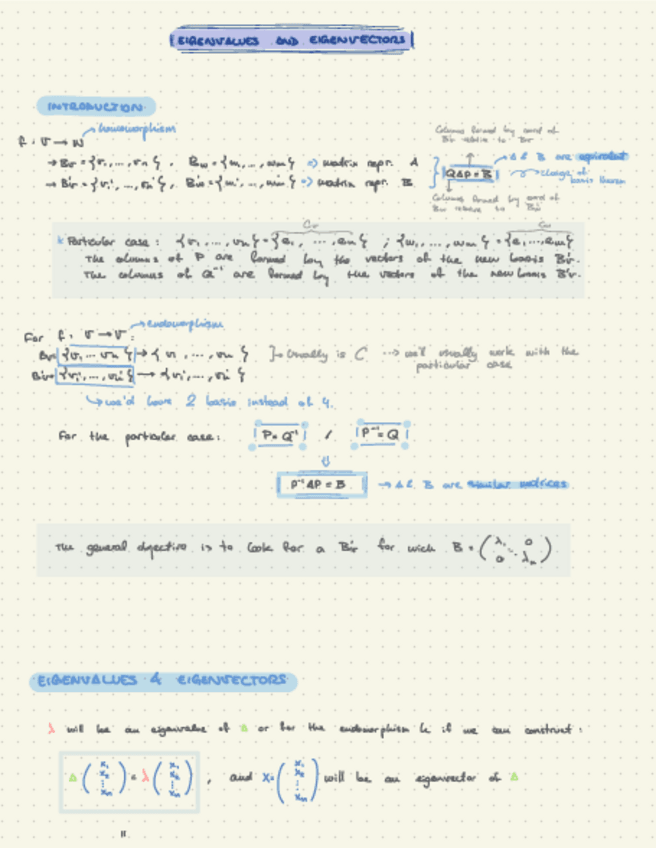 EIGENVALUES AND EIGENVECTORS
INTRODUCTION
homomorphism
f: V → W
→ Bv = {v₁, ..., vn}, Bw = {w₁, ..., wm} => matrix repr. A
→ B'v = {v₁', ..., vn'}, B'w = {w₁', ..., wm'} => matrix repr. B
Columns formed by coord of
B'v relative to Bv
QAP = B
→ A & B are equivalent
change of
basis theorem
Columns formed by coord of
Bw relative to B'w
* Particular case: {v₁, ..., vn} = {e₁, ..., en} ; {w₁, ..., wm} = {e₁, ..., em}
The columns of P are formed by the vectors of the new basis B'v.
The columns of Q⁻¹ are formed by the vectors of the new basis B'w.
For f: V → V:
→ endomorphism
Bv = {v₁, ... vn} → {v₁, ..., vn}
B'v = {v₁', ..., vn'} → {v₁', ..., vn'}
→ Usually is C --> we'll usually work with the
particular case
→ we'd have 2 basis instead of 4.
For the particular case: P = Q⁻¹ / P⁻¹ = Q
⇓
P⁻¹AP = B → A & B are similar matrices
The general objective is to look for a B'v for wich B = (λ₁ 0
0 λn)
EIGENVALUES & EIGENVECTORS
λ will be an eigenvalue of A or for the endomorphism if we can construct:
A (x₁ x₂ ⋮ xn) = λ (x₁ x₂ ⋮ xn), and x = (x₁ x₂ ⋮ xn) will be an eigenvector of A